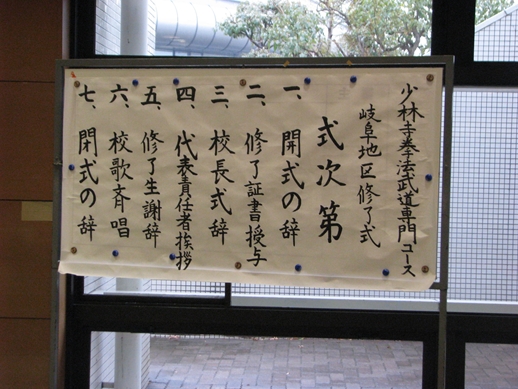 少林寺拳法武道専門コース
岐阜地区修了式
式次第
一、開式の辞
二、修了証書授与
三、校長式辞
四、代表責任者挨拶
五、修了生謝辞
六、校歌斉唱
七、閉式の辞